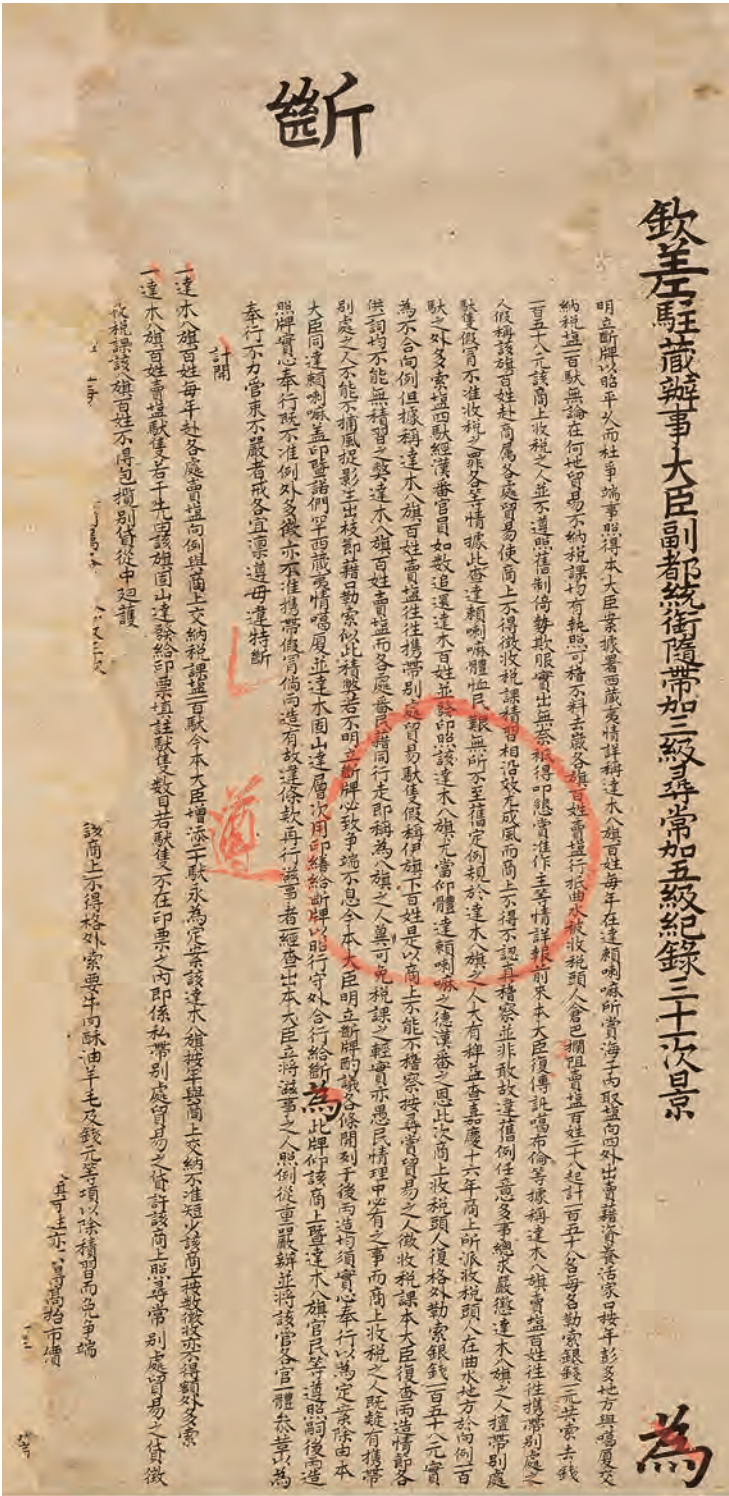 斷
欽差駐藏辦事大臣副都統銜隨帶加三級尋常加五級紀錄三十一次景
為
明立斷牌以昭平允而杜爭端事照得本大臣案據署西藏夷情詳稱達木八旗百姓每年在達賴喇嘛所賞海子內取塩向四外出賣藉資養活家口按年彭多地方與噶厦交
納稅塩一百馱無論在何地貿易不納稅課均有執照可稽不料去歲各旗百姓賣塩行抵曲水被收稅頭人倉巴攔阻賣塩百姓二十八起計一百五十八名每名勒索銀錢一元共索去錢
一百五十八元該商上收稅之人並不遵照舊制倚勢欺服實出無奈祇得叩懇賞准作主等情詳報前來本大臣復傳訊噶布倫等據稱達木八旗賣塩百姓往往携帶別處之
人假稱該旗百姓赴商属各處貿易使商上不得徵收稅課積習相沿效尤成風而商上不得不認真稽察並非敢故違舊例任意多事總求嚴懲達木八旗之人擅帶別處
馱隻假冒不准收稅之罪各等情據此查達賴喇嘛體恤民艱無所不至舊定例規於達木八旗之人大有裨益查嘉慶十六年商上所派收稅頭人在曲水地方於向例一百
馱之外多索塩四馱經漢番官員如數追還達木百姓並發印照該達木八旗尤當仰體達賴喇嘛之德漢番之恩此次商上收稅頭人復格外勒索銀錢一百五十八元實
為不合向例但據稱達木八旗百姓賣塩往往携帶別處貿易馱隻假稱伊旗下百姓是以商上亦不能不稽察按尋常貿易之人徵收稅課本大臣復查兩造情節各
供一詞均不能無積習之獘達木八旗百姓賣塩而各處番民藉同行走即稱為八旗之人兾可免稅課之輕實亦愚民情理中必有之事而商上收稅之人既疑有携帶
別處之人不能不捕風捉影生出枝節藉口勒索似此積獘若不明立斷牌必致爭端不息今本大臣明立斷牌酌議各條開列于後兩造均須實心奉行以為定案除由本
大臣同達賴喇嘛盖印暨諾們罕西藏夷情噶厦並達木固山達層次用印繕給斷牌以昭行守外合行給斷為此牌仰該商上暨達木八旗官民等遵照嗣後兩造
照牌實心奉行既不准例外多徵亦不准携帶假冒倘兩造有故違條款再行滋事者一經查出本大臣立將滋事之人照例從重嚴辦並將該管各官一體叅革以為
奉行不力管束不嚴者戒各宜凜遵毋違特斷
遵
計開
一達木八旗百姓每年赴各處賣塩向例與商上交納稅課塩一百馱今本大臣增添二十馱永為定案該達木八旗按年與商上交納不准短少該商上按數徵收亦不得額外多索
一達木八旗百姓賣塩馱隻若干先由該旗固山達發給印票填註馱隻數目若馱隻不在印票之內即係私帶別處貿易之貨許該商上照尋常別處貿易之貨徵
收稅課該八旗百姓不得包攬別貨從中廻護
該商上不得格外索要牛肉酥油羊毛及錢元等項以除積習而免爭端
得高抬市價